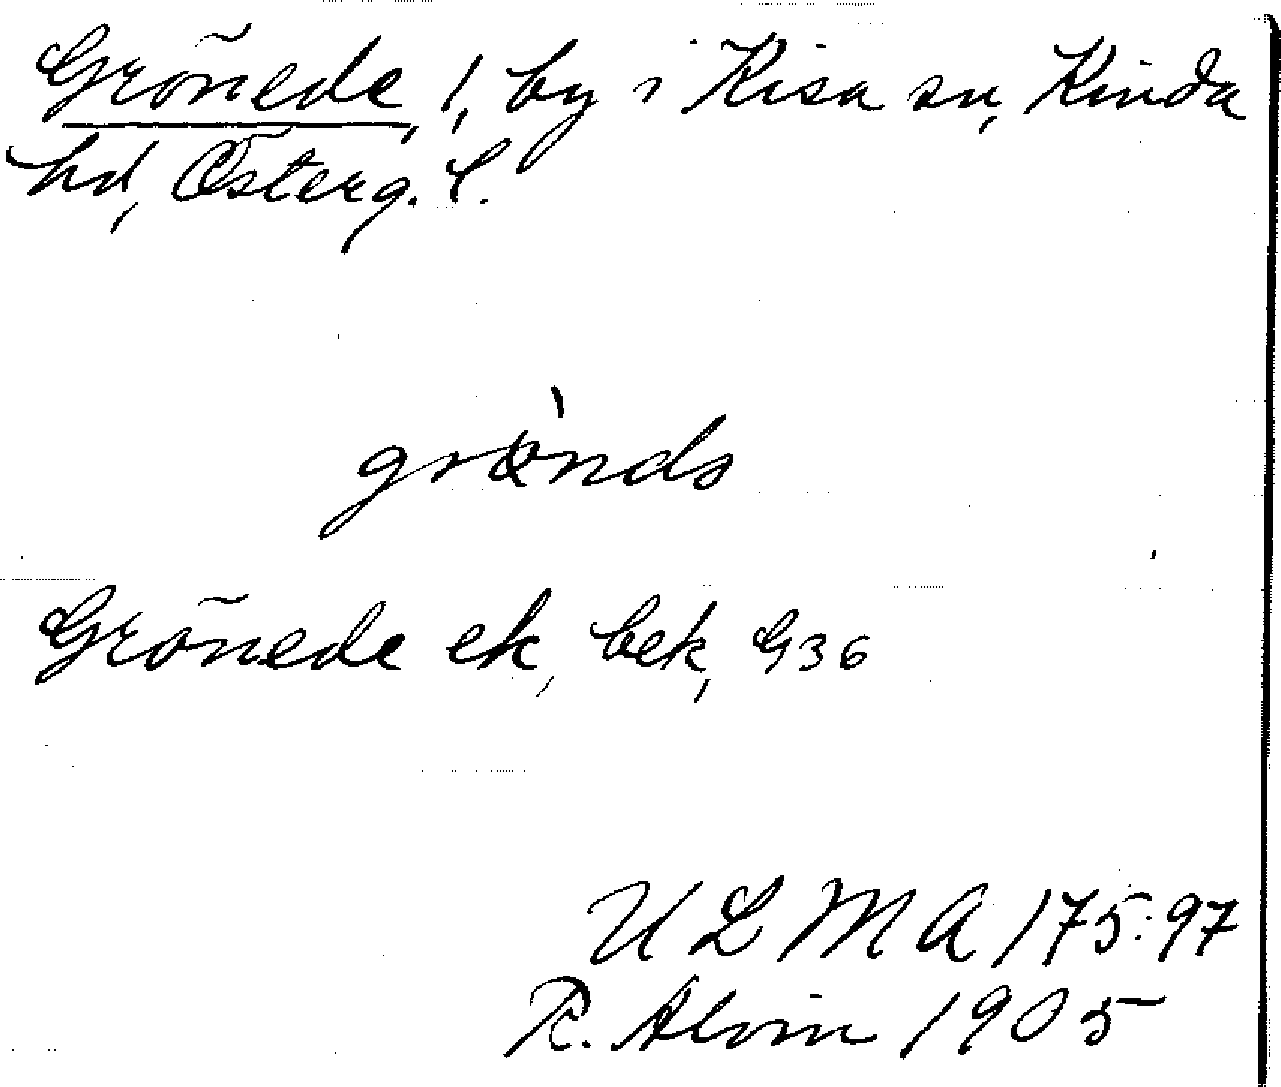 Grönede, 1, by i Kisa sn, Kinda
hd, Österg. l.
Grönede ek, bek, G36
ULMA 175:97
R. Alvin 1905